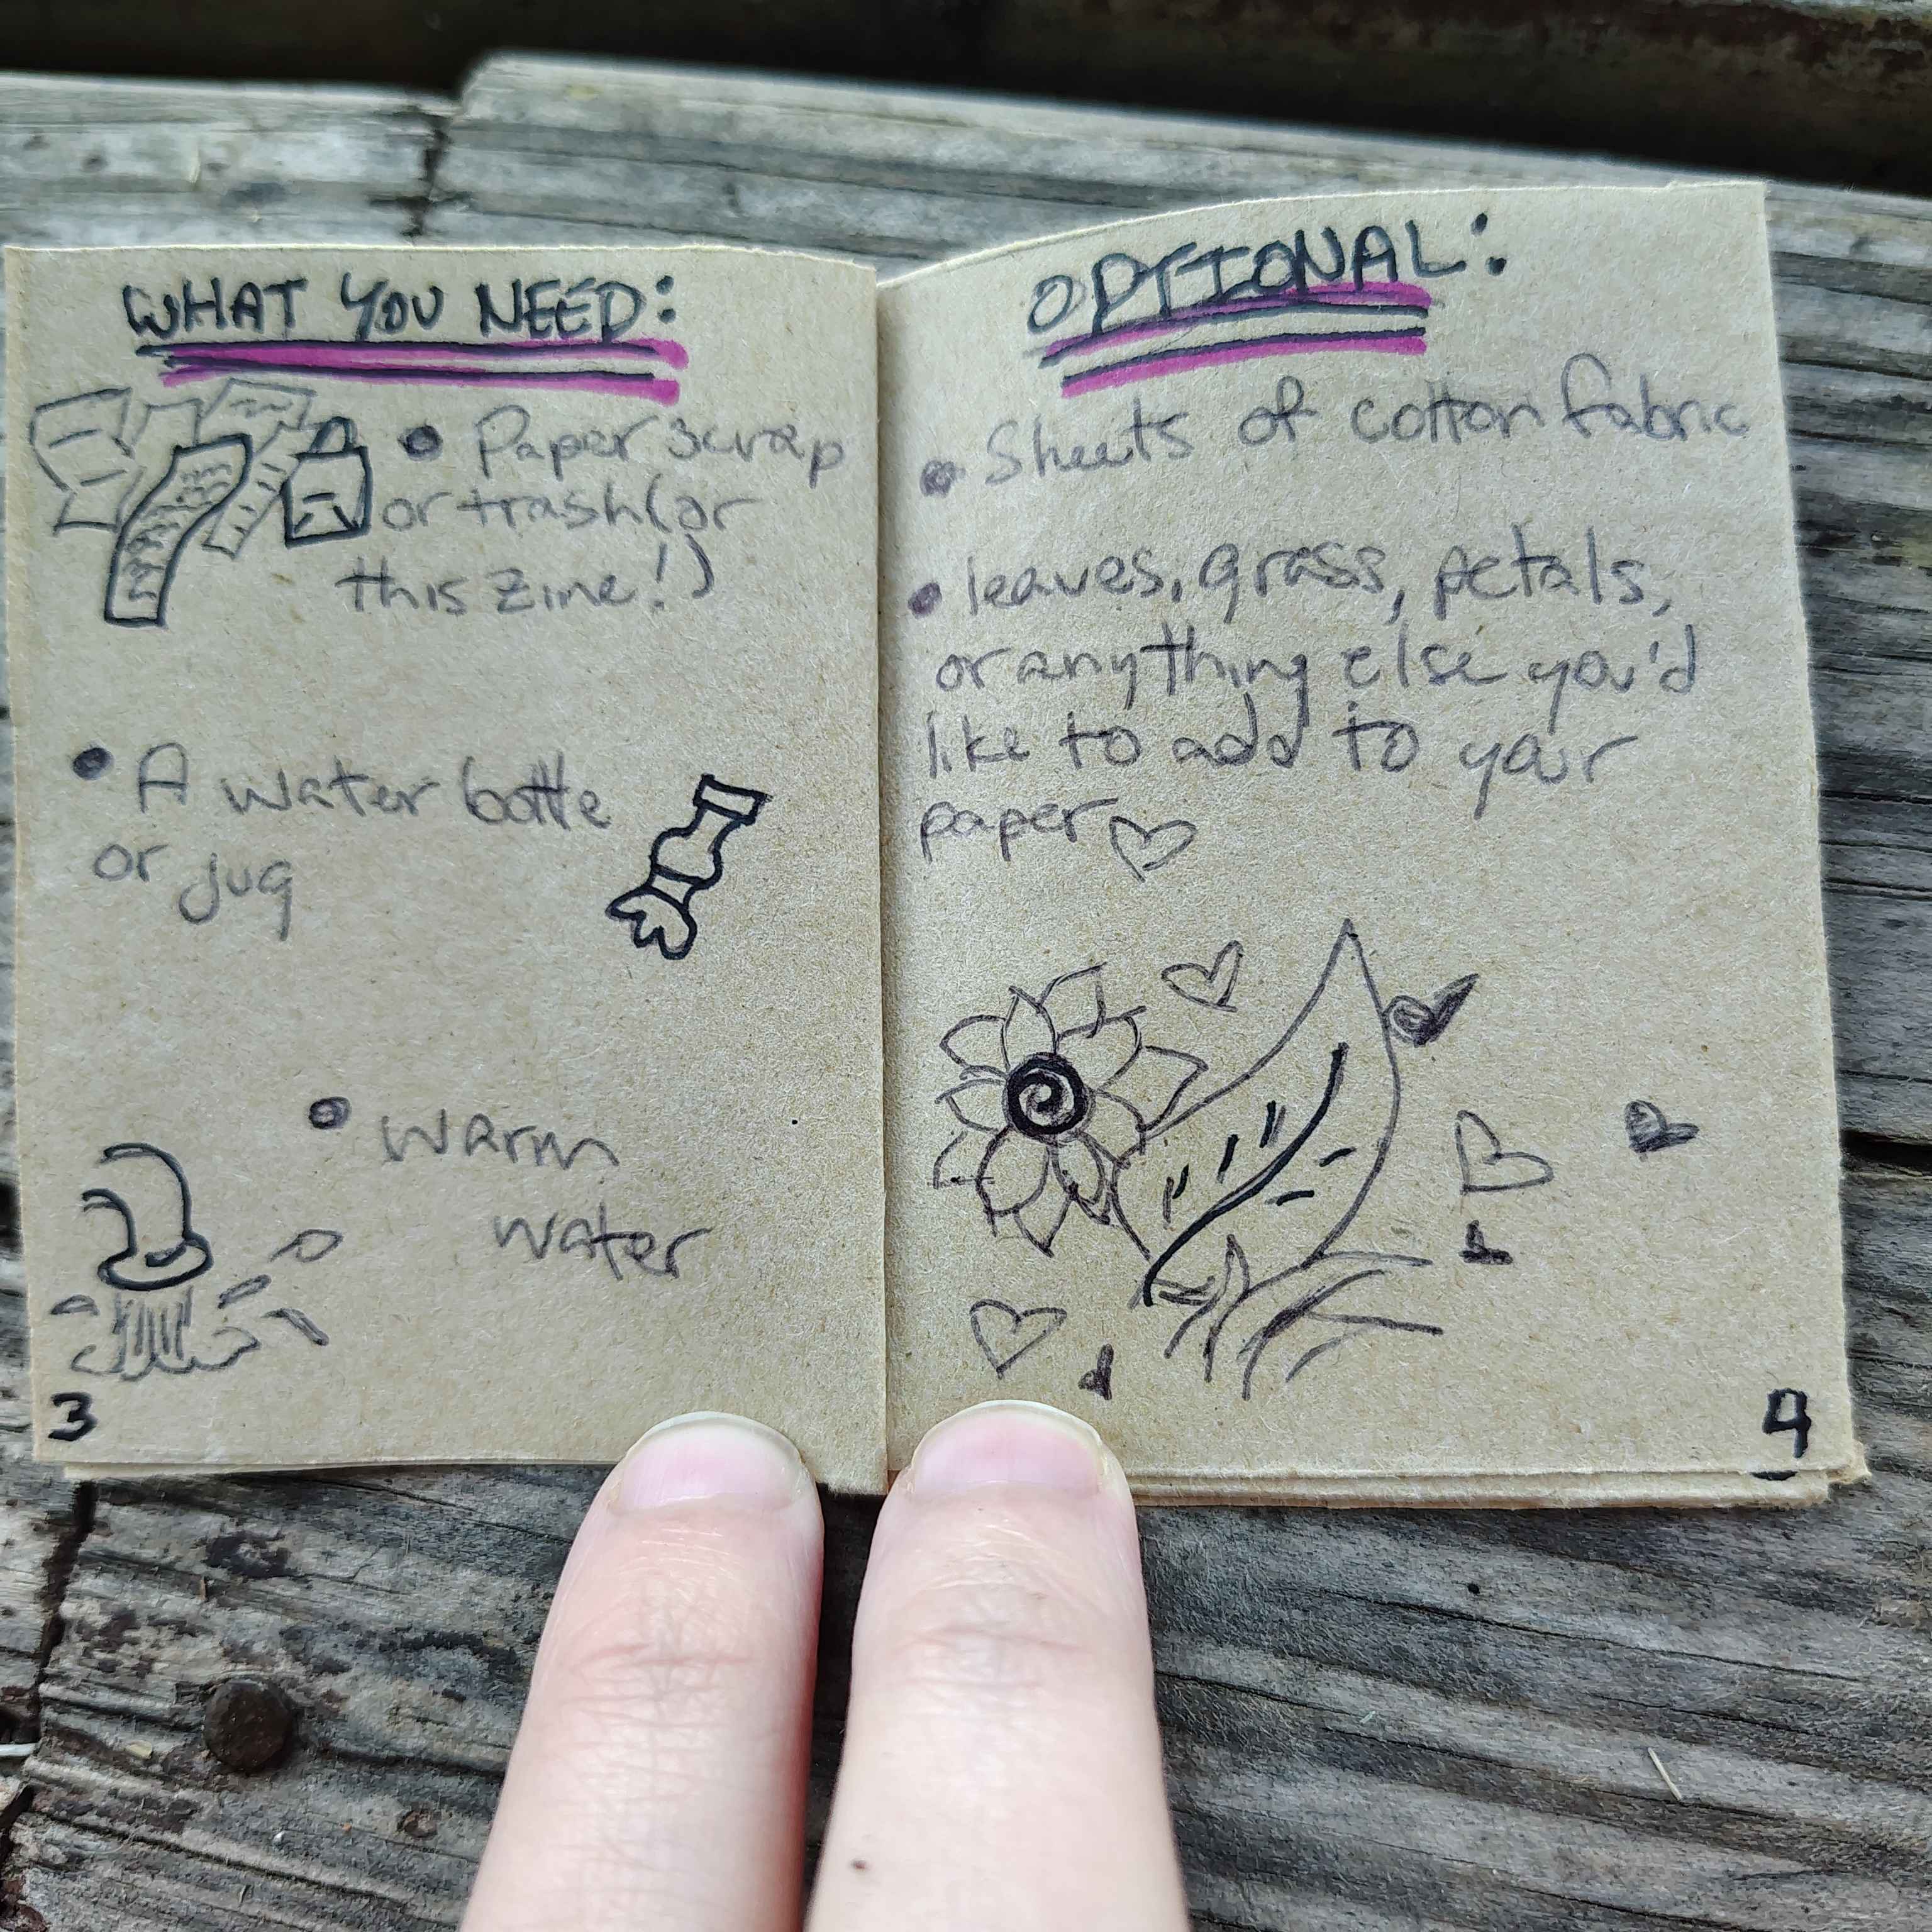 WHAT YOU NEED:
• Paper scrap
or trash (or
this zine!)
• A water bottle
or jug
• warm
water
3
OPTIONAL:
• Sheets of cotton fabric
• leaves, grass, petals,
or anything else you'd
like to add to your
paper ♡
4